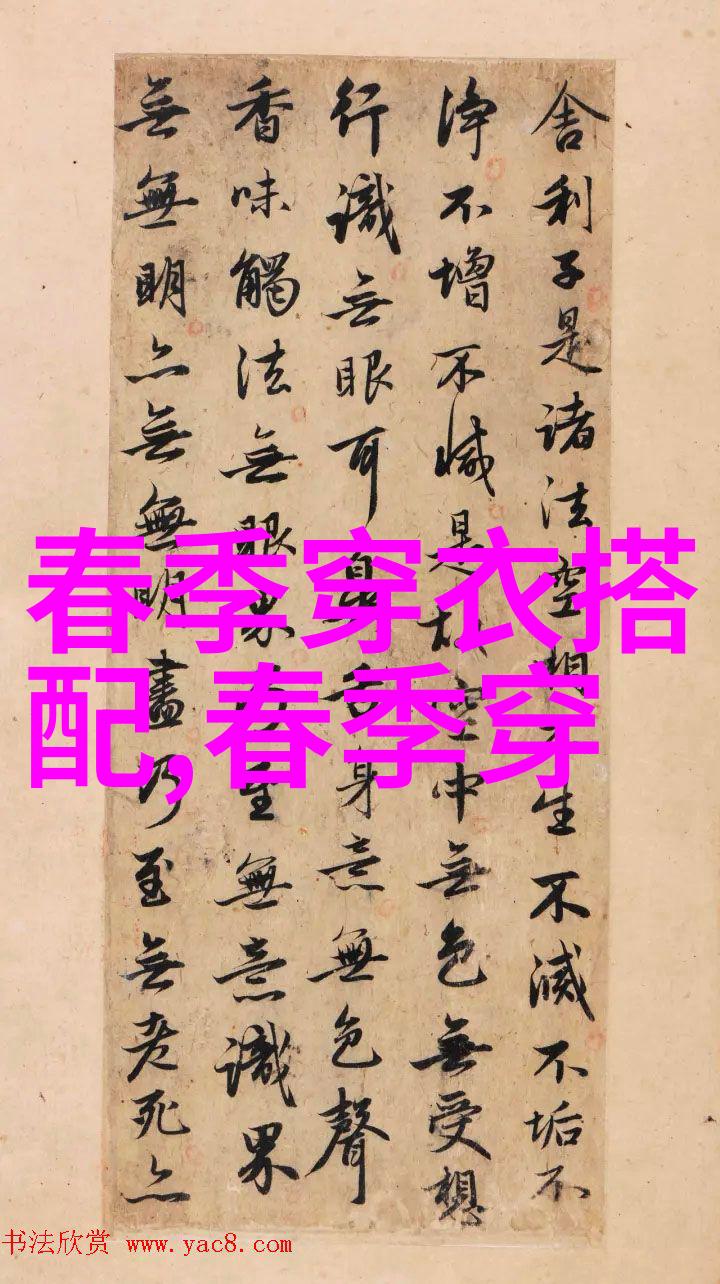 舍利子是諸法空相不生不滅不垢不
淨不增不減是故空中無色無受想
行識無眼耳鼻舌身意無色聲
香味觸法無眼界乃至無意識界
無無明亦無無明盡乃至無老死亦
春季穿衣搭
配,春季穿
书法欣赏 www.yac8.com